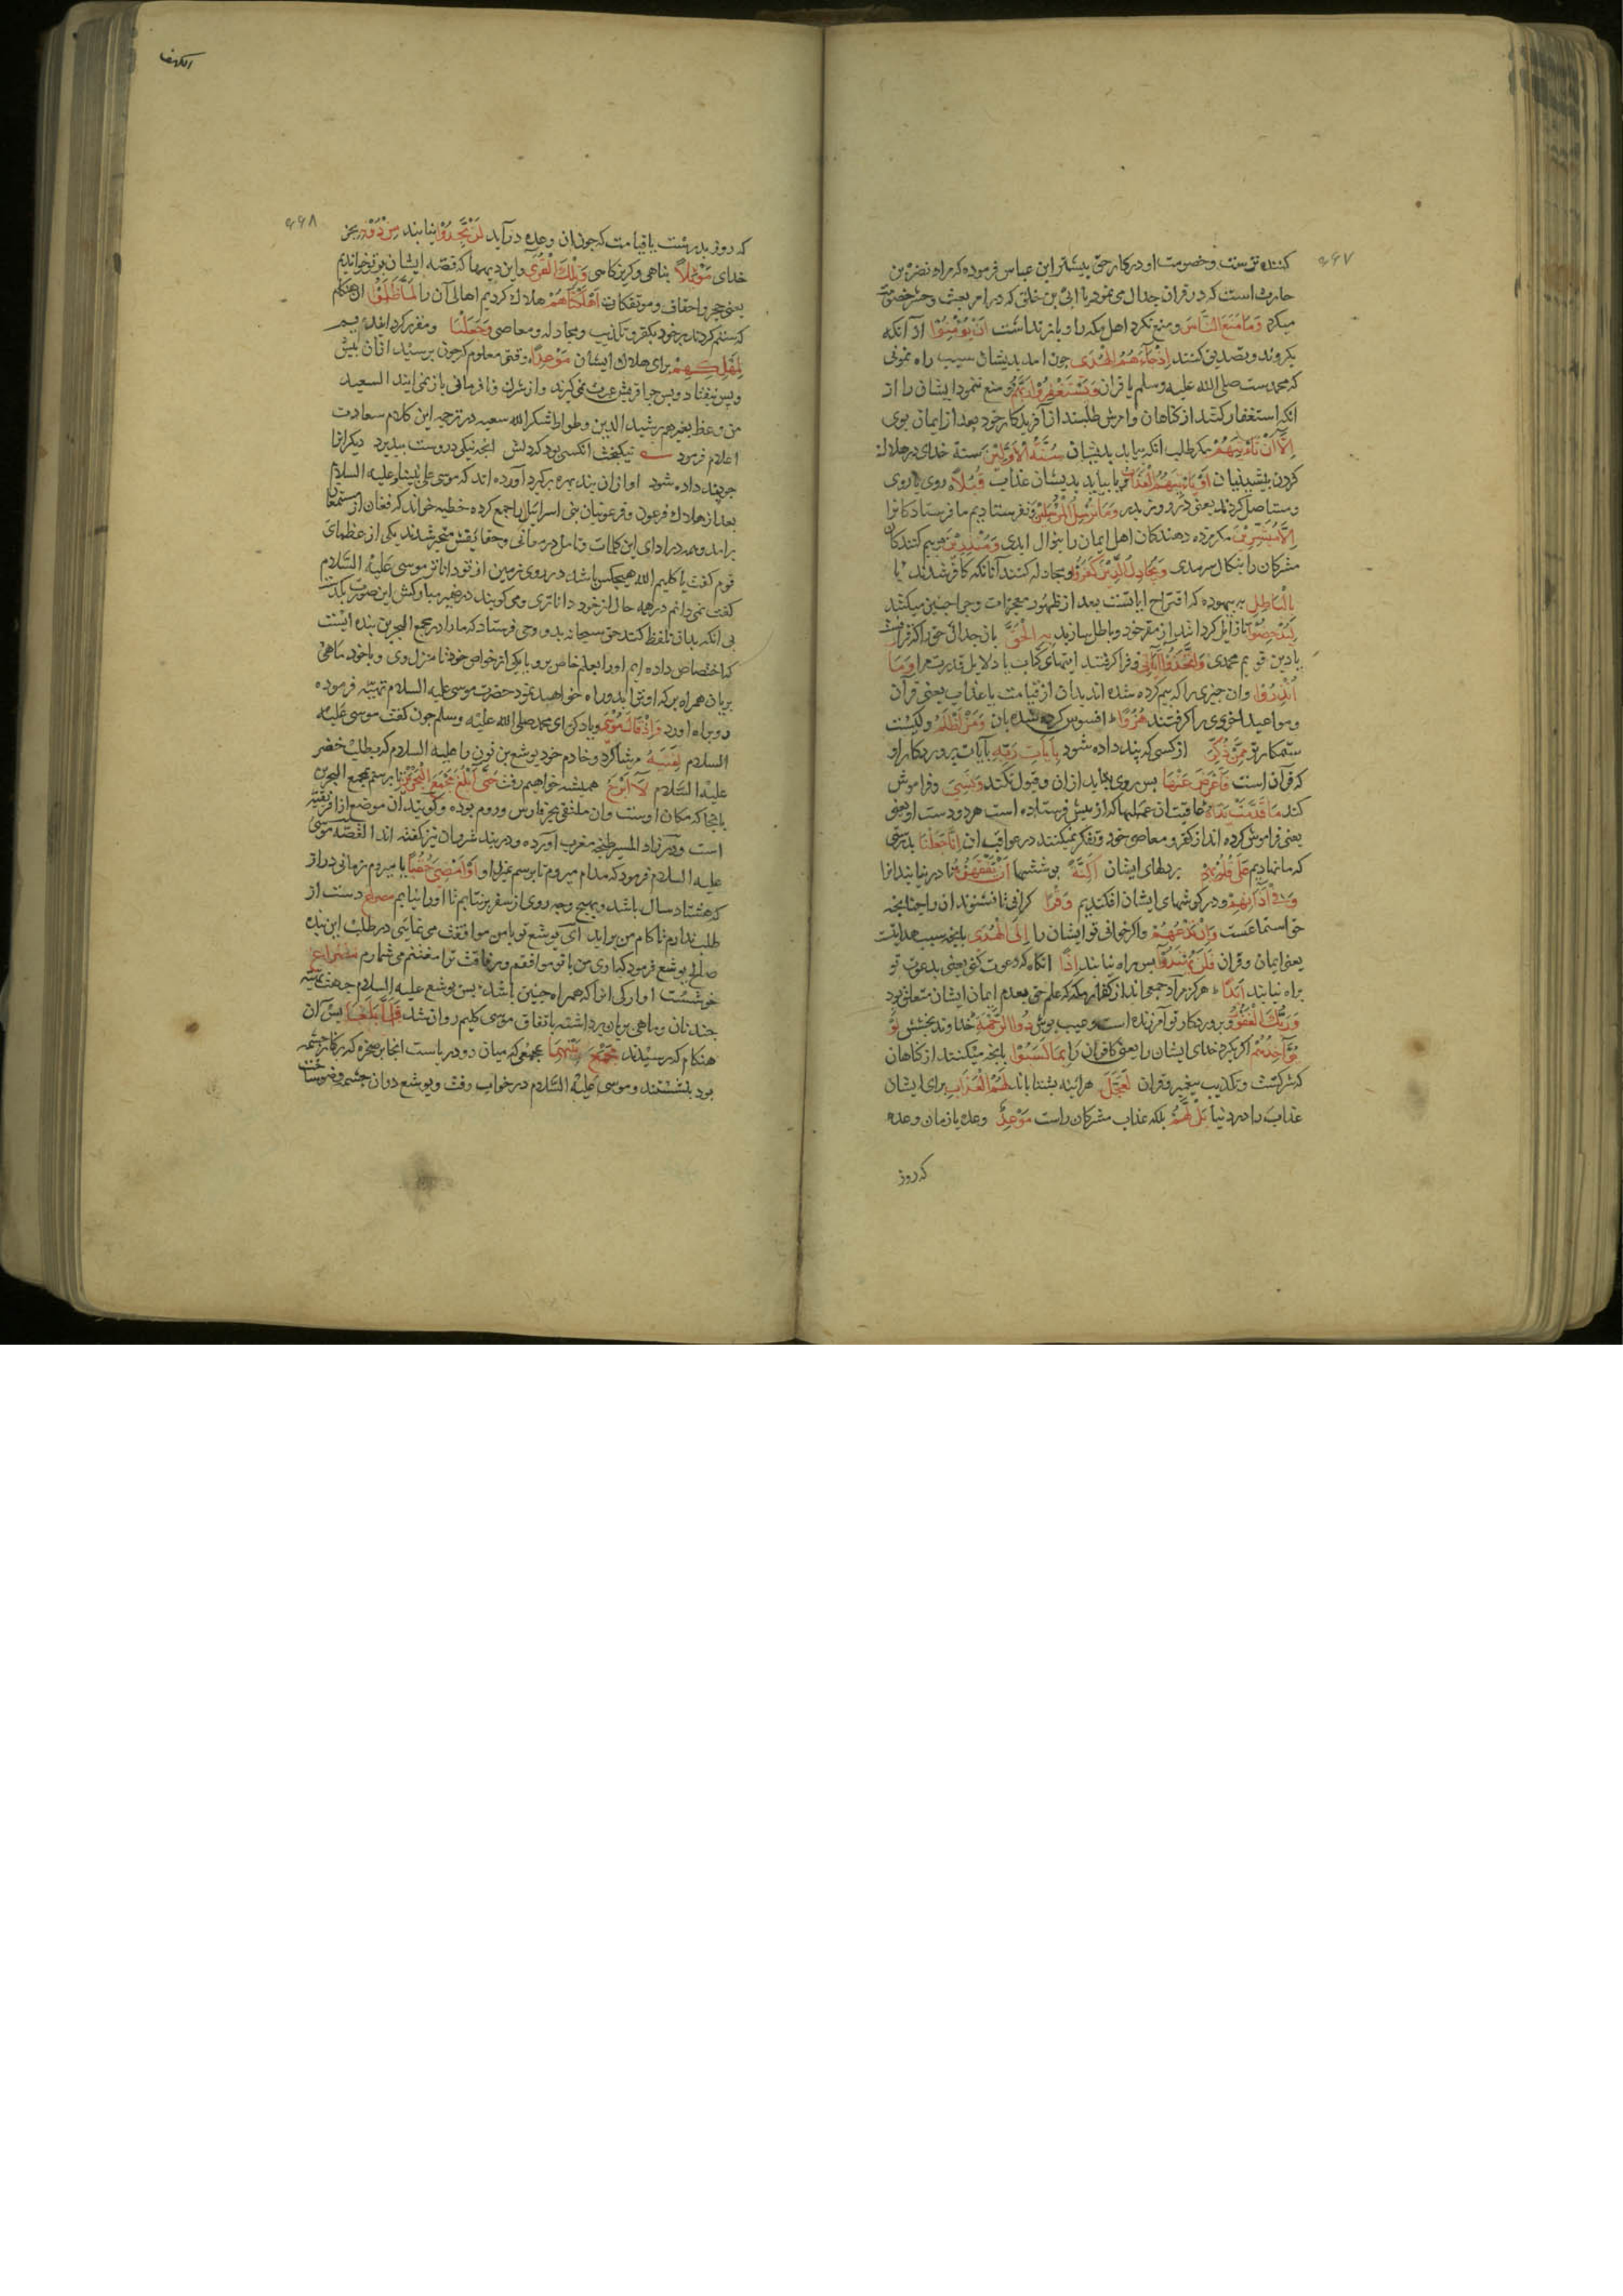 ۹۶۷
کننده ترست وخصومت او درکار حق بیشتر ابن عباس فرموده که مراد نضر بن
حارث است که در قران جدال می نمود یا ابی بن خلف که در امر بعث وحشر خصومت
میکرد وَمَا مَنَعَ النَّاسَ ومنع نکرد اهل مکه را وباز نداشت اَنْ یُؤْمِنُوْا از آنکه
بکروند وتصدیق کنند اِذْ جَآءَهُمُ الْهُدَى چون امد بدیشان سبب راه نمونی
که محمدست صلی الله علیه وسلم یا قران وَیَسْتَغْفِرُوْا رَبَّهُمْ ومنع ننمود ایشان را از
انکه استغفار کنند از کناهان وامرزش طلبند از آفریدکار خود بعد از ایمان بوی
اِلَّا اَنْ تَاْتِیَهُمْ مکر طلب انکه بیاید بدیشان سُنَّةُ الْاَوَّلِیْنَ سنة خدای در هلاک
کردن پیشینیان اَوْ یَاْتِیَهُمُ الْعَذَابُ یا بیاید بدیشان عذاب قُبُلًا روی یا روی
ومستاصل کردند یعنی در روز بدر وَمَا نُرْسِلُ الْمُرْسَلِیْنَ ونفرستادیم ما فرستادکانرا
اِلَّا مُبَشِّرِیْنَ مکر مژده دهندکان اهل ایمان را بنوال ابدی وَمُنْذِرِیْنَ وبیم کنندکان
مشرکان را بنکال سرمدی وَیُجَادِلُ الَّذِیْنَ کَفَرُوْا ومجادله کنند آنانکه کافر شدند یا
بِالْبَاطِلِ به بیهوده که اقتراح ایاتست بعد از ظهور معجزات وچرا چنین میکنند
لِیُدْحِضُوْا تا زایل کردانند از مقر خود وباطل سازند بِهِ الْحَقَّ بان جدال حق را که قرانست
یا دین قویم محمدی وَاتَّخَذُوْا اٰیَاتِیْ وفرا کرفتند ایتهای کتاب یا دلایل قدرت مرا وَمَا
اُنْذِرُوْا وان چیزی را که بیم کرده شده اند بدان از قیامت یا عذاب یعنی قرآن
ومواعید اخروی را کرفتند هُزُوًا افسوس کرده شده بان وَمَنْ اَظْلَمُ وکیست
ستمکارتر مِمَّنْ ذُکِّرَ از کسی که پند داده شود بِاٰیَاتِ رَبِّهٖ بآیات پروردکار او
که قرآن است فَاَعْرَضَ عَنْهَا پس روی بتابد از ان وقبول نکند وَنَسِیَ وفراموش
کند مَا قَدَّمَتْ یَدَاهُ عاقبت ان عملها که از پیش فرستاده است هر دو دست او یعنی
یعنی فراموش کرده اند از کفر ومعاصی خود وتفکر نمیکنند در عواقب ان اِنَّا جَعَلْنَا بدرستی
که ما نهادیم عَلٰی قُلُوْبِهِمْ بر دلهای ایشان اَکِنَّةً پوششها اَنْ یَفْقَهُوْهُ تا در نیابند انرا
وَفِیْ اٰذَانِهِمْ ودر کوشهای ایشان افکندیم وَقْرًا کرانی تا نشنوند ان را چنانچه
حق استماعست وَاِنْ تَدْعُهُمْ واکر خوانی تو ایشان را اِلَى الْهُدٰى بانچه سبب هدایتست
یعنی ایمان وقران فَلَنْ یَهْتَدُوْا پس راه نیابند اِذًا انکاه که دعوت کنی یعنی بدعوت تو
براه نیابند اَبَدًا هرکز مراد جمعی اند از کفار مکه که علم حق بعدم ایمان ایشان متعلق بود
وَرَبُّكَ الْغَفُوْرُ وپروردکار تو آمرزنده است وعیب پوش ذُو الرَّحْمَةِ خداوند بخشش لَوْ
یُؤَاخِذُهُمْ اکر بکیرد خدای ایشان را یعنی کافران را بِمَا کَسَبُوْا بانچه میکنند از کناهان
که شرکست وتکذیب پیغمبر وقران لَعَجَّلَ هرائینه بشتاباند لَهُمُ الْعَذَابَ برای ایشان
عذاب را در دنیا بَلْ لَهُمْ بلکه عذاب مشرکان راست مَوْعِدٌ وعده یا زمان وعده
که روز
الکهف
۹۶۸
که روز بدرست یا قیامت که چون ان وعده درآید لَنْ یَجِدُوْا نیابند مِنْ دُوْنِهٖ بجز
خدای مَوْئِلًا پناهی وکریزکاهی وَتِلْكَ الْقُرٰى واین دیهها که قصه ایشان بر تو خواندیم
یعنی حجر واحقاف وموتفکات اَهْلَکْنَاهُمْ هلاک کردیم اهالی آن را لَمَّا ظَلَمُوْا ان هنکام
که ستم کردند بر خود بکفر وتکذیب ومجادله ومعاصی وَجَعَلْنَا ومقرر کردانیدیم
لِمَهْلِکِهِمْ برای هلاک ایشان مَوْعِدًا وقتی معلوم که چون برسید ازان پیش
وپس نیفتاد وپس چرا قریش عبرت نمی کیرند واز شرک ونافرمانی باز نمی ایند السعید
من وعظ بغیره رشید الدین وطواط شکر الله سعیه در ترجمه این کلام سعادت
اعلام فرمود نیکبخت انکسی بود که دلش انچه نیکی دروست بپذیرد دیکرانرا
چو پند داده شود او ازان پند بهره برکیرد آورده اند که موسی علی نبینا وعلیه السلام
بعد از هلاک فرعون وفرعونیان بنی اسرائیل را جمع کرده خطبه خواند که فغان از مستمعان
برامد وهمه در ادای این کلمات وتامل در معانی وحقائقش متحیر شدند یکی از عظمای
قوم کفت یا کلیم الله هیچکس باشد در روی زمین از تو دانا تر موسی عَلَیْهِ السَّلَام
کفت نمی دانم در همه حال از خود داناتری ومی کویند در ضمیر مبارکش این صورت بکذشت
بی انکه بدان تلفظ کند حق سبحانه بدو وحی فرستاد که مارا در مجمع البحرین بنده ایست
که اختصاص داده ایم اورا بعلم خاص برو با یکی از خواص خود تا منزل وی وبا خود ماهی
بریان همراه بر که او ترا بدو راه خواهد نمود حضرت موسی علیه السلام تهیئه فرموده
رو براه اورد وَاِذْ قَالَ مُوْسٰى ویاد کن ای محمد صلی الله علیه وسلم چون کفت موسی علیه
السلام لِفَتٰىهُ مر شاکرد وخادم خود یوشع بن نون را علیه السلام که بطلب خضر
علیه السَّلام لَا اَبْرَحُ همیشه خواهم رفت حَتّٰى اَبْلُغَ مَجْمَعَ الْبَحْرَیْنِ تا برسم بمجمع البحرین
یا انجا که مکان اوست وان ملتقی بحر فارس وروم بوده وکویند ان موضع از افریقیه
است ودر زاد المسیر طنجه مغرب آورده ودربند شروان نیز کفته اند القصه موسی
علیه السلام فرمود که مدام میروم تا برسم بمنزل او اَوْ اَمْضِیَ حُقُبًا یا میروم زمانی دراز
که هشتاد سال باشد وبهیچ وجه روی از سفر برنتابم تا اورا نیابم مصرع دست از
طلب ندارم تا کام من براید ای یوشع تو با من موافقت می نمایی در طلب این بنده
صالح یوشع فرمود که اری من با تو موافقم ومرافقت ترا مغتنم می شمارم مصراع
خوشست اوارکی انرا که همراه چنین باشد پس یوشع علیه السلام جهت تهیئه
چند نان وماهی بریان برداشته باتفاق موسی کلیم روان شد فَلَمَّا بَلَغَا پس آن
هنکام که رسیدند مَجْمَعَ بَیْنِهِمَا بمجمعی که میان دو دریاست انجا بر صخره که بر کنار چشمه
بود بنشستند وموسی علیه السَّلام در خواب رفت ویوشع دران چشمه وضو ساخت